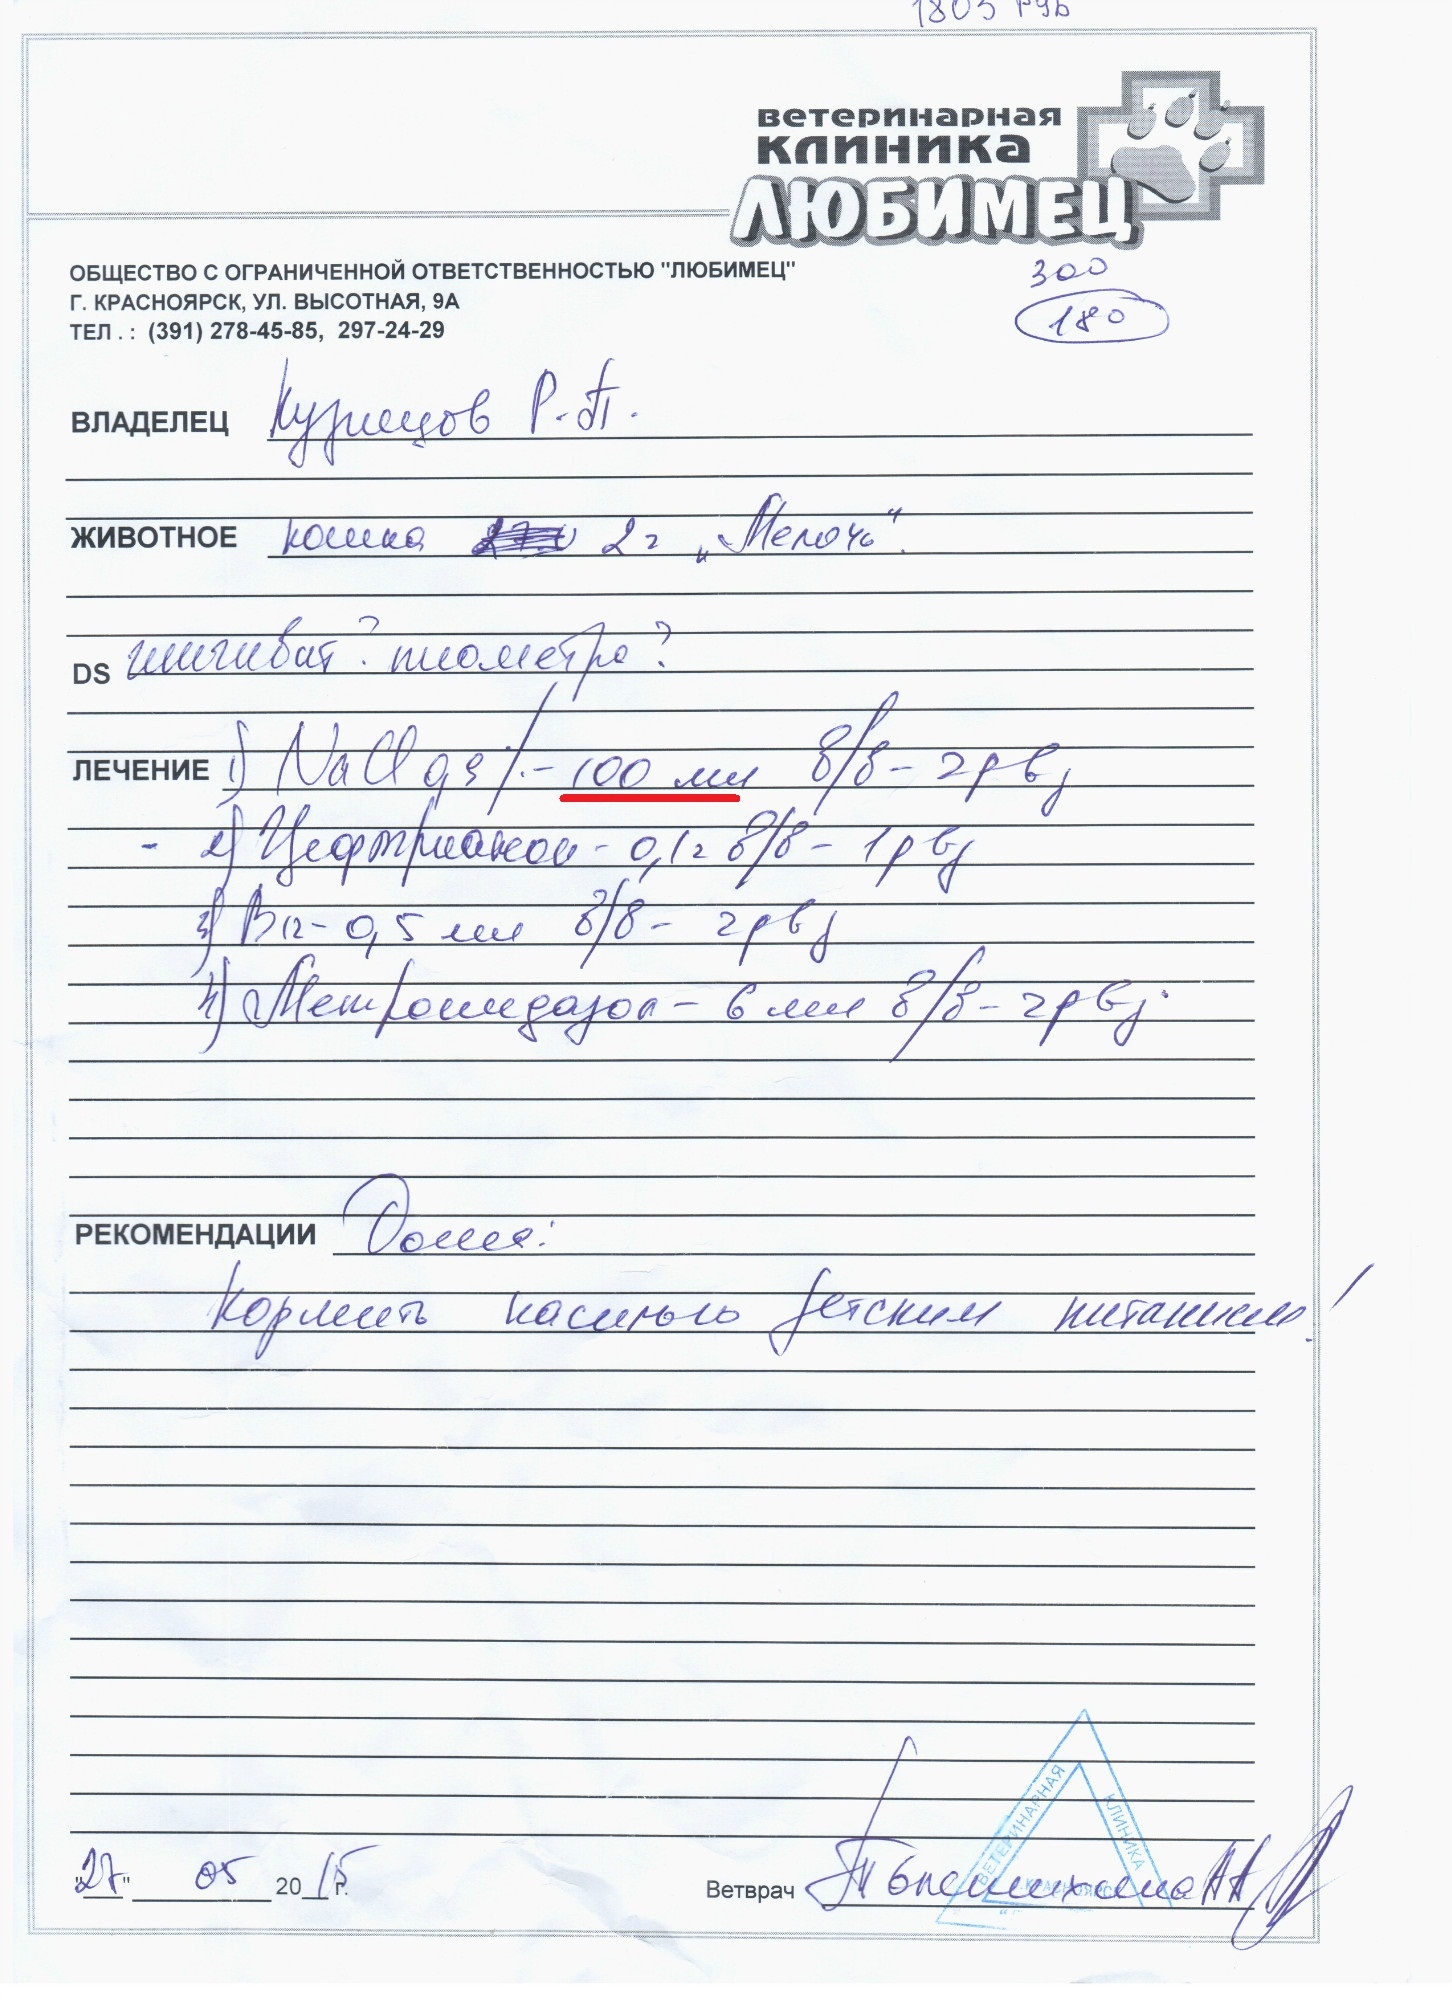 1803 руб
ветеринарная
клиника
ЛЮБИМЕЦ
ОБЩЕСТВО С ОГРАНИЧЕННОЙ ОТВЕТСТВЕННОСТЬЮ "ЛЮБИМЕЦ"
Г. КРАСНОЯРСК, УЛ. ВЫСОТНАЯ, 9А
ТЕЛ . : (391) 278-45-85, 297-24-29
300
180
ВЛАДЕЛЕЦ Кузнецов Р.П.
ЖИВОТНОЕ кошка 2 г „Мелочь".
DS гингивит? пиометра?
ЛЕЧЕНИЕ 1) NaCl 0,9% - 100 мл в/в - 2 р в д
- 2) Цефтриаксон - 0,1 г в/в - 1 р в д
3) B12 - 0,5 мл в/в - 2 р в д
4) Метронидазол - 6 мл в/в - 2 р в д.
РЕКОМЕНДАЦИИ Дома:
Кормить насильно детским питанием!
"27" 05 2015 г.
Ветврач
ВЕТЕРИНАРНАЯ КЛИНИКА
КРАСНОЯРСК